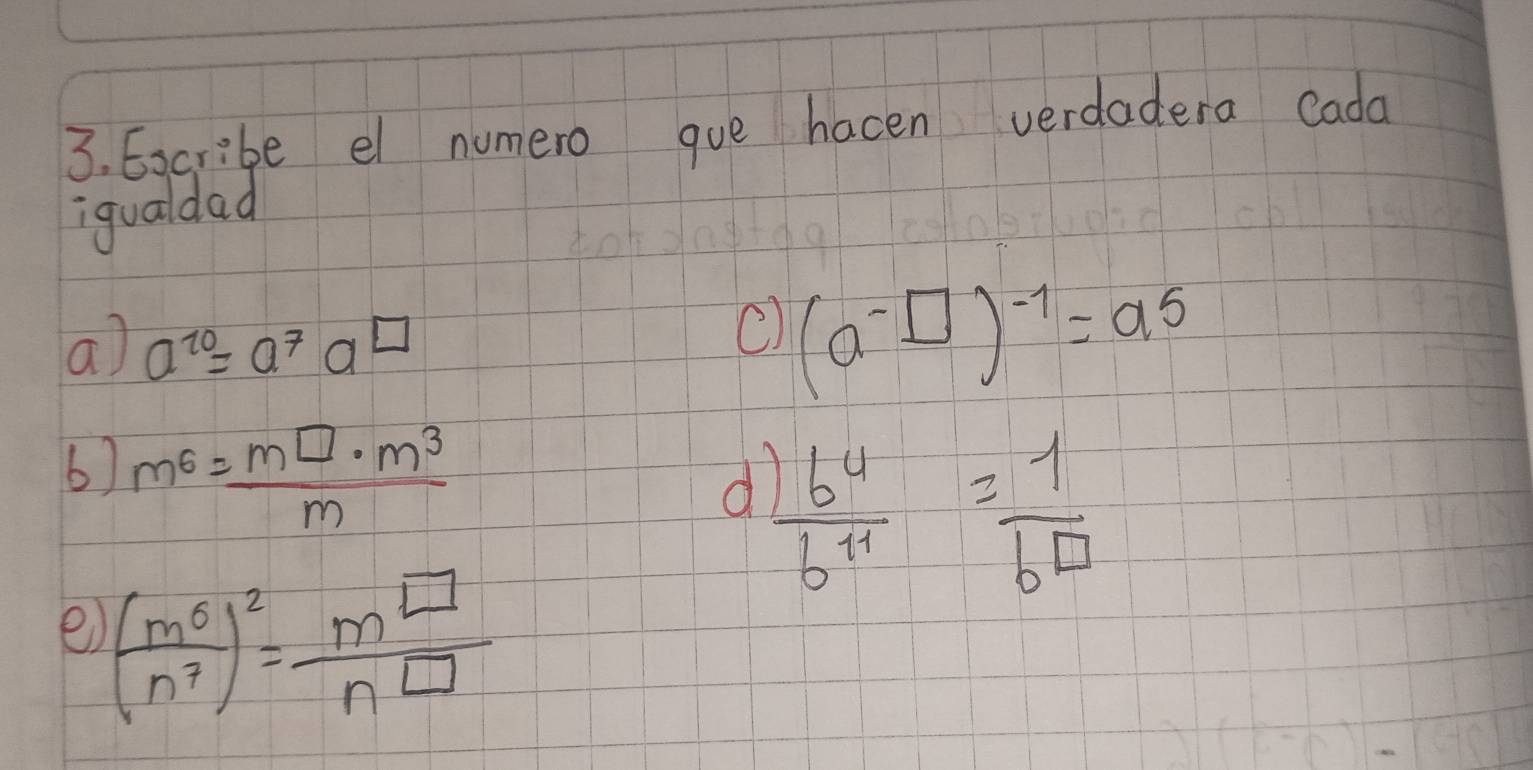 3. Escribe el numero que hacen verdadera cada
igualdad
a) a¹⁰ = a⁷ a^□
c) (a^-□)⁻¹ = a⁵
b) m⁶ = m^□ · m³ / m
d) b⁴ / b¹¹ = 1 / b^□
e) (m⁶ / n⁷)² = m^□ / n^□